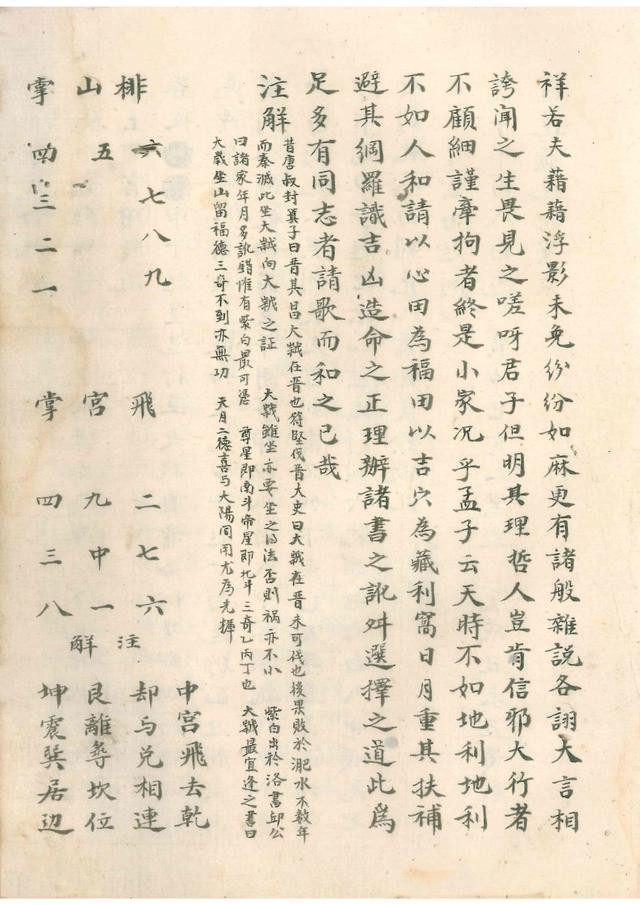 祥若夫藉藉浮影未免紛紛如麻更有諸般雜說各詡大言相
誇聞之生畏見之嗟呀君子但明其理哲人豈肯信邪大行者
不顧細謹牽拘者終是小家況乎孟子云天時不如地利地利
不如人和請以心田為福田以吉穴為藏利窩日月重其扶補
避其綱羅識吉凶造命之正理辦諸書之訛舛選擇之道此為
足多有同志者請歌而和之已哉
注解
昔唐叔封箕子曰晋其昌大歲在晋也符堅伐晋大史曰大歲在晋未可伐也後果敗於淝水不数年
而秦滅此坐大歲向大歲之証 大歲雖坐亦要坐之得法否則禍亦不小 紫白出於洛書邱公
曰諸家年月多訛錯惟有紫白最可憑 尊星即南斗帝星即北斗 三奇乙丙丁也 大歲最宜逢之書曰
大歲坐山留福德三奇不到亦無功 天月二德喜与大陽同用尤為光輝
排 六七八九
山 五
掌 四三二一
飛 二七六
宮 九中一
掌 四三八
注解
中宮飛去乾
却与兌相連
艮離尋坎位
坤震巽居边